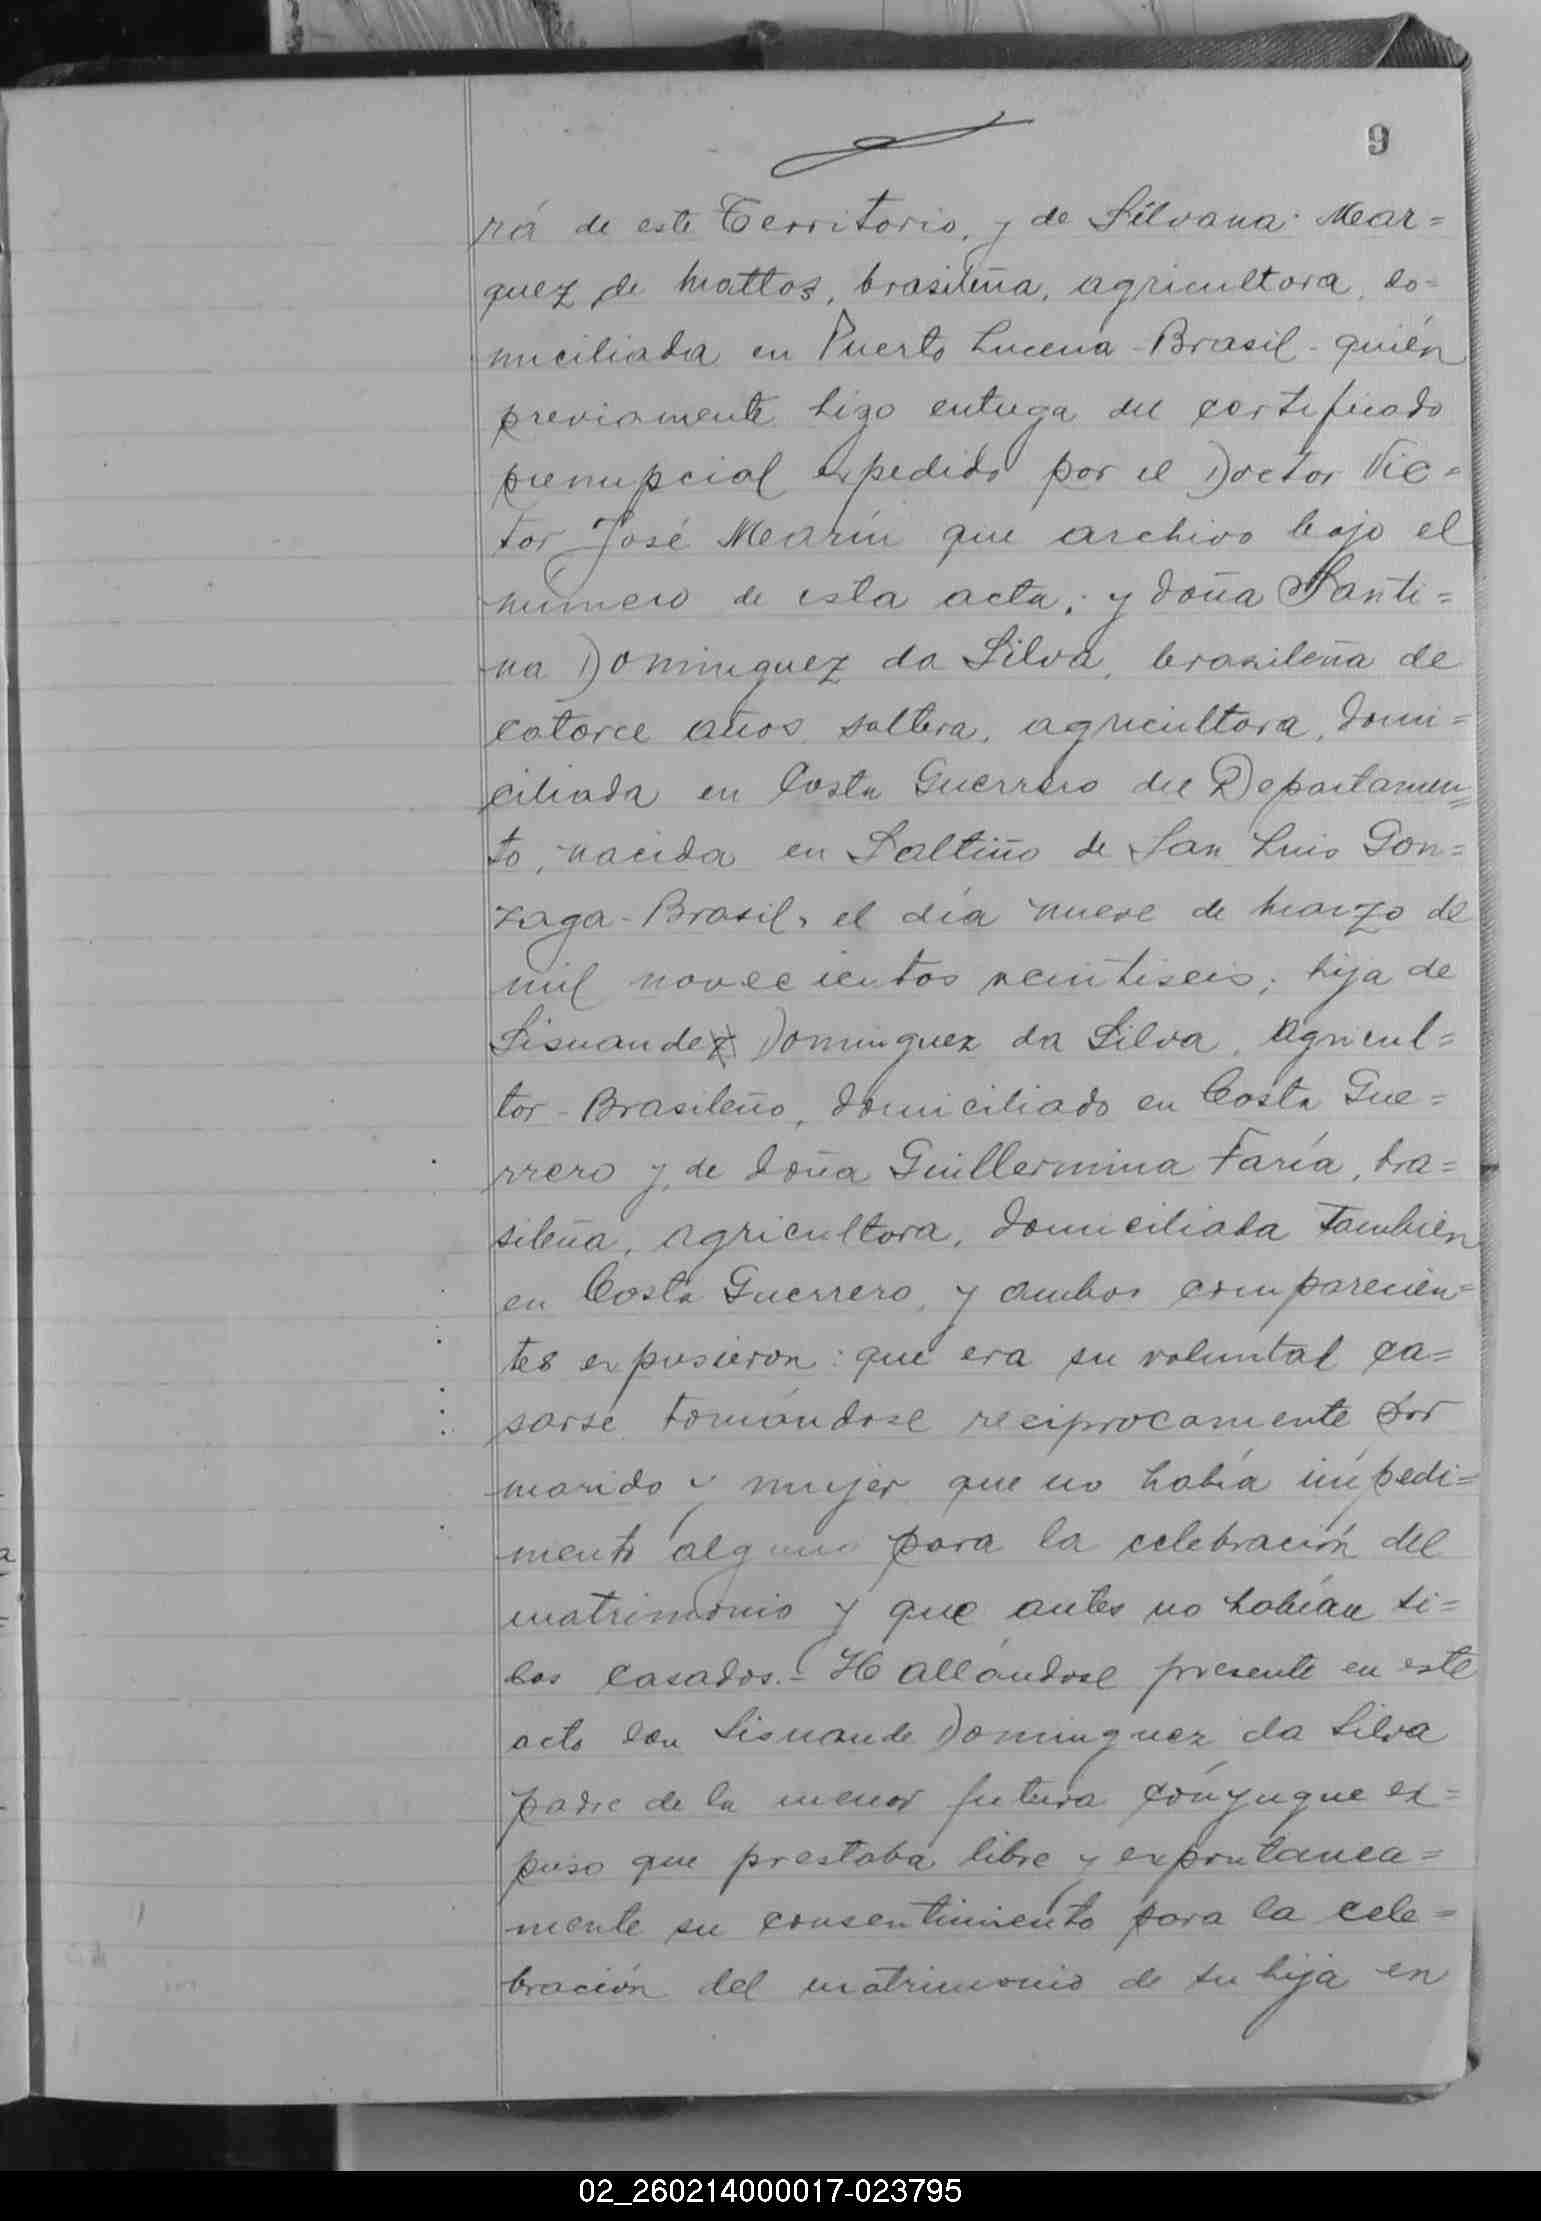 9
rá de este Territorio, y de Silvana Mar=
quez de Mattos, brasileña, agricultora, do=
miciliada en Puerto Lucena - Brasil - quién
previamente hizo entrega del certificado
prenupcial expedido por el Doctor Vic=
tor José Marín que archivo bajo el
número de esta acta; y doña Santi=
na Dominguez da Silva, brasileña de
catorce años, soltera, agricultora, domi=
ciliada en Costa Guerrero del Departamen=
to, nacida en Saltiño de San Luis Gon=
zaga - Brasil, el día nueve de Marzo de
mil novecientos veintiseis; hija de
Lisnande Dominguez da Silva, agricul=
tor - Brasileño, domiciliado en Costa Gue=
rrero y de doña Guillermina Faría, bra=
sileña, agricultora, domiciliada tambien
en Costa Guerrero, y ambos comparecien=
tes expusieron: que era su voluntad ca=
sarse tomándose reciprocamente por
marido y mujer que no había impedi=
mento alguno para la celebración del
matrimonio y que antes no habían si=
dos casados.- Hallándose presente en este
acto don Lisnande Dominguez da Silva
padre de la menor futura cónyugue ex=
puso que prestaba libre y expontanea=
mente su consentimiento para la cele=
bración del matrimonio de su hija en
02_260214000017-023795